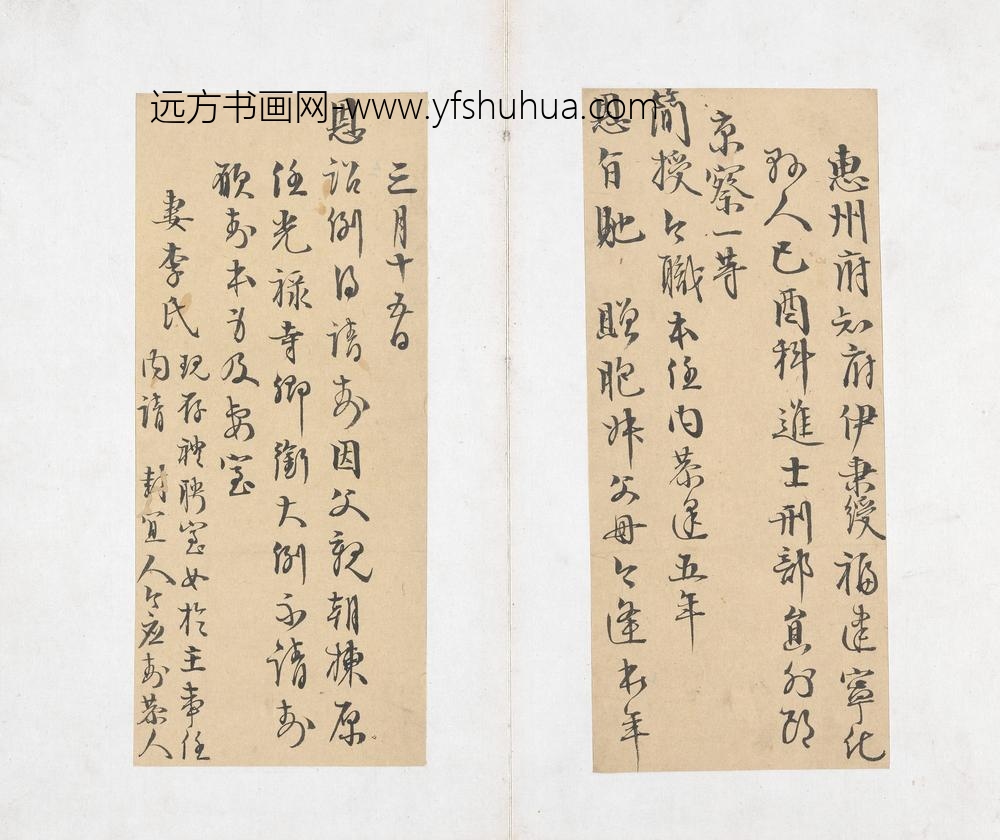 远方书画网-www.yfshuhua.com
惠州府知府伊秉绶福建寧化
縣人己酉科進士刑部員外郎
京察一等
簡授今職本任内恭逢五年
恩旨貤贈胞妹父母今逢本年
三月十五日
恩詔例得請封因父親朝棟原
任光禄寺卿銜大例不請封
願封本身及妻室
妻李氏
現存禮聘室女於主事任
内請封宜人今應封恭人